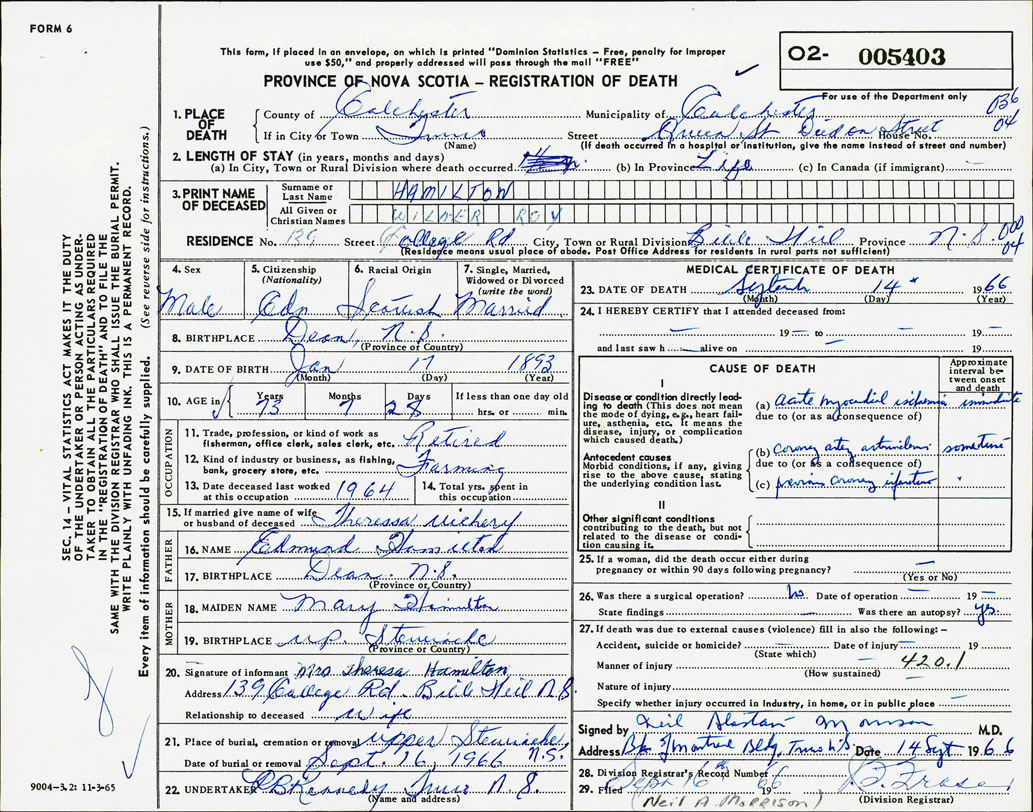 FORM 6
This form, if placed in an envelope, on which is printed "Dominion Statistics – Free, penalty for improper
use $50," and properly addressed will pass through the mail "FREE"
O2- 005403
PROVINCE OF NOVA SCOTIA – REGISTRATION OF DEATH
For use of the Department only
036
04
1. PLACE OF DEATH
County of Colchester Municipality of Colchester
If in City or Town Truro Street Queen St House No.
(Name) (If death occurred in a hospital or institution, give the name instead of street and number)
2. LENGTH OF STAY (in years, months and days)
(a) In City, Town or Rural Division where death occurred (b) In Province Life (c) In Canada (if immigrant) —
3. PRINT NAME OF DECEASED
Surname or Last Name HAMILTON
All Given or Christian Names WILMER ROY
RESIDENCE No. 139 Street College Rd City, Town or Rural Division Bible Hill Province N.S.
(Residence means usual place of abode. Post Office Address for residents in rural parts not sufficient)
000
04
4. Sex Male
5. Citizenship (Nationality) Cdn
6. Racial Origin Scottish
7. Single, Married, Widowed or Divorced (write the word) Married
8. BIRTHPLACE Dean, N.S.
(Province or Country)
9. DATE OF BIRTH Jan 17 1893
(Month) (Day) (Year)
10. AGE in Years 73 Months 7 Days 28 If less than one day old hrs. or min.
OCCUPATION
11. Trade, profession, or kind of work as fisherman, office clerk, sales clerk, etc. Retired
12. Kind of industry or business, as fishing, bank, grocery store, etc. Farming
13. Date deceased last worked at this occupation 1964
14. Total yrs. spent in this occupation
15. If married give name of wife or husband of deceased Theressa
FATHER
16. NAME Edmund Hamilton
17. BIRTHPLACE Dean, N.S.
(Province or Country)
MOTHER
18. MAIDEN NAME Mary Hamilton
19. BIRTHPLACE up. Stewiacke
(Province or Country)
20. Signature of informant Mrs Theresa Hamilton
Address 139 College Rd. Bible Hill N.S.
Relationship to deceased wife
21. Place of burial, cremation or removal Upper Stewiacke, N.S.
Date of burial or removal Sept. 16, 1966
22. UNDERTAKER Kennedy Truro N.S.
(Name and address)
MEDICAL CERTIFICATE OF DEATH
23. DATE OF DEATH 14 1966
(Month) (Day) (Year)
24. I HEREBY CERTIFY that I attended deceased from:
— 19 — to — 19 —
and last saw h — alive on — 19 —
CAUSE OF DEATH
Approximate interval between onset and death
I
Disease or condition directly leading to death (This does not mean the mode of dying, e.g., heart failure, asthenia, etc. It means the disease, injury, or complication which caused death.)
(a) Acute myocardial ischemia immediate
due to (or as a consequence of)
Antecedent causes
Morbid conditions, if any, giving rise to the above cause, stating the underlying condition last.
(b) coronary artery
due to (or as a consequence of)
(c) previous coronary infarction "
II
Other significant conditions
contributing to the death, but not related to the disease or condition causing it.
25. If a woman, did the death occur either during pregnancy or within 90 days following pregnancy? —
(Yes or No)
26. Was there a surgical operation? No Date of operation — 19 —
State findings — Was there an autopsy? yes.
27. If death was due to external causes (violence) fill in also the following:–
Accident, suicide or homicide? — Date of injury — 19
(State which)
Manner of injury 420.1
(How sustained)
Nature of injury —
Specify whether injury occurred in Industry, in home, or in public place —
Signed by Neil Alastair Morrison M.D.
Address Bldg, Truro N.S Date 14 Sept 1966
28. Division Registrar's Record Number
29. Filed Sept 16th 1966 B. Fraser
(Division Registrar)
(Neil A. MORRISON)
SEC. 14 – VITAL STATISTICS ACT MAKES IT THE DUTY
OF THE UNDERTAKER OR PERSON ACTING AS UNDER-
TAKER TO OBTAIN ALL THE PARTICULARS REQUIRED
IN THE "REGISTRATION OF DEATH" AND TO FILE THE
SAME WITH THE DIVISION REGISTRAR WHO SHALL ISSUE THE BURIAL PERMIT.
WRITE PLAINLY WITH UNFADING INK. THIS IS A PERMANENT RECORD.
Every item of information should be carefully supplied. (See reverse side for instructions.)
9004–3.2: 11-3-65